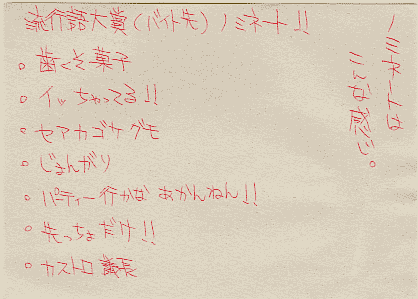 流行語大賞(バイト先)ノミネート!!
。歯くそ菓子
。イッちゃってる!!
。セアカゴケグモ
。じまんがり
。パーティー行かな あかんねん!!
。先っちょだけ!!
。カストロ議長
ノミネートは
こんな感じ。